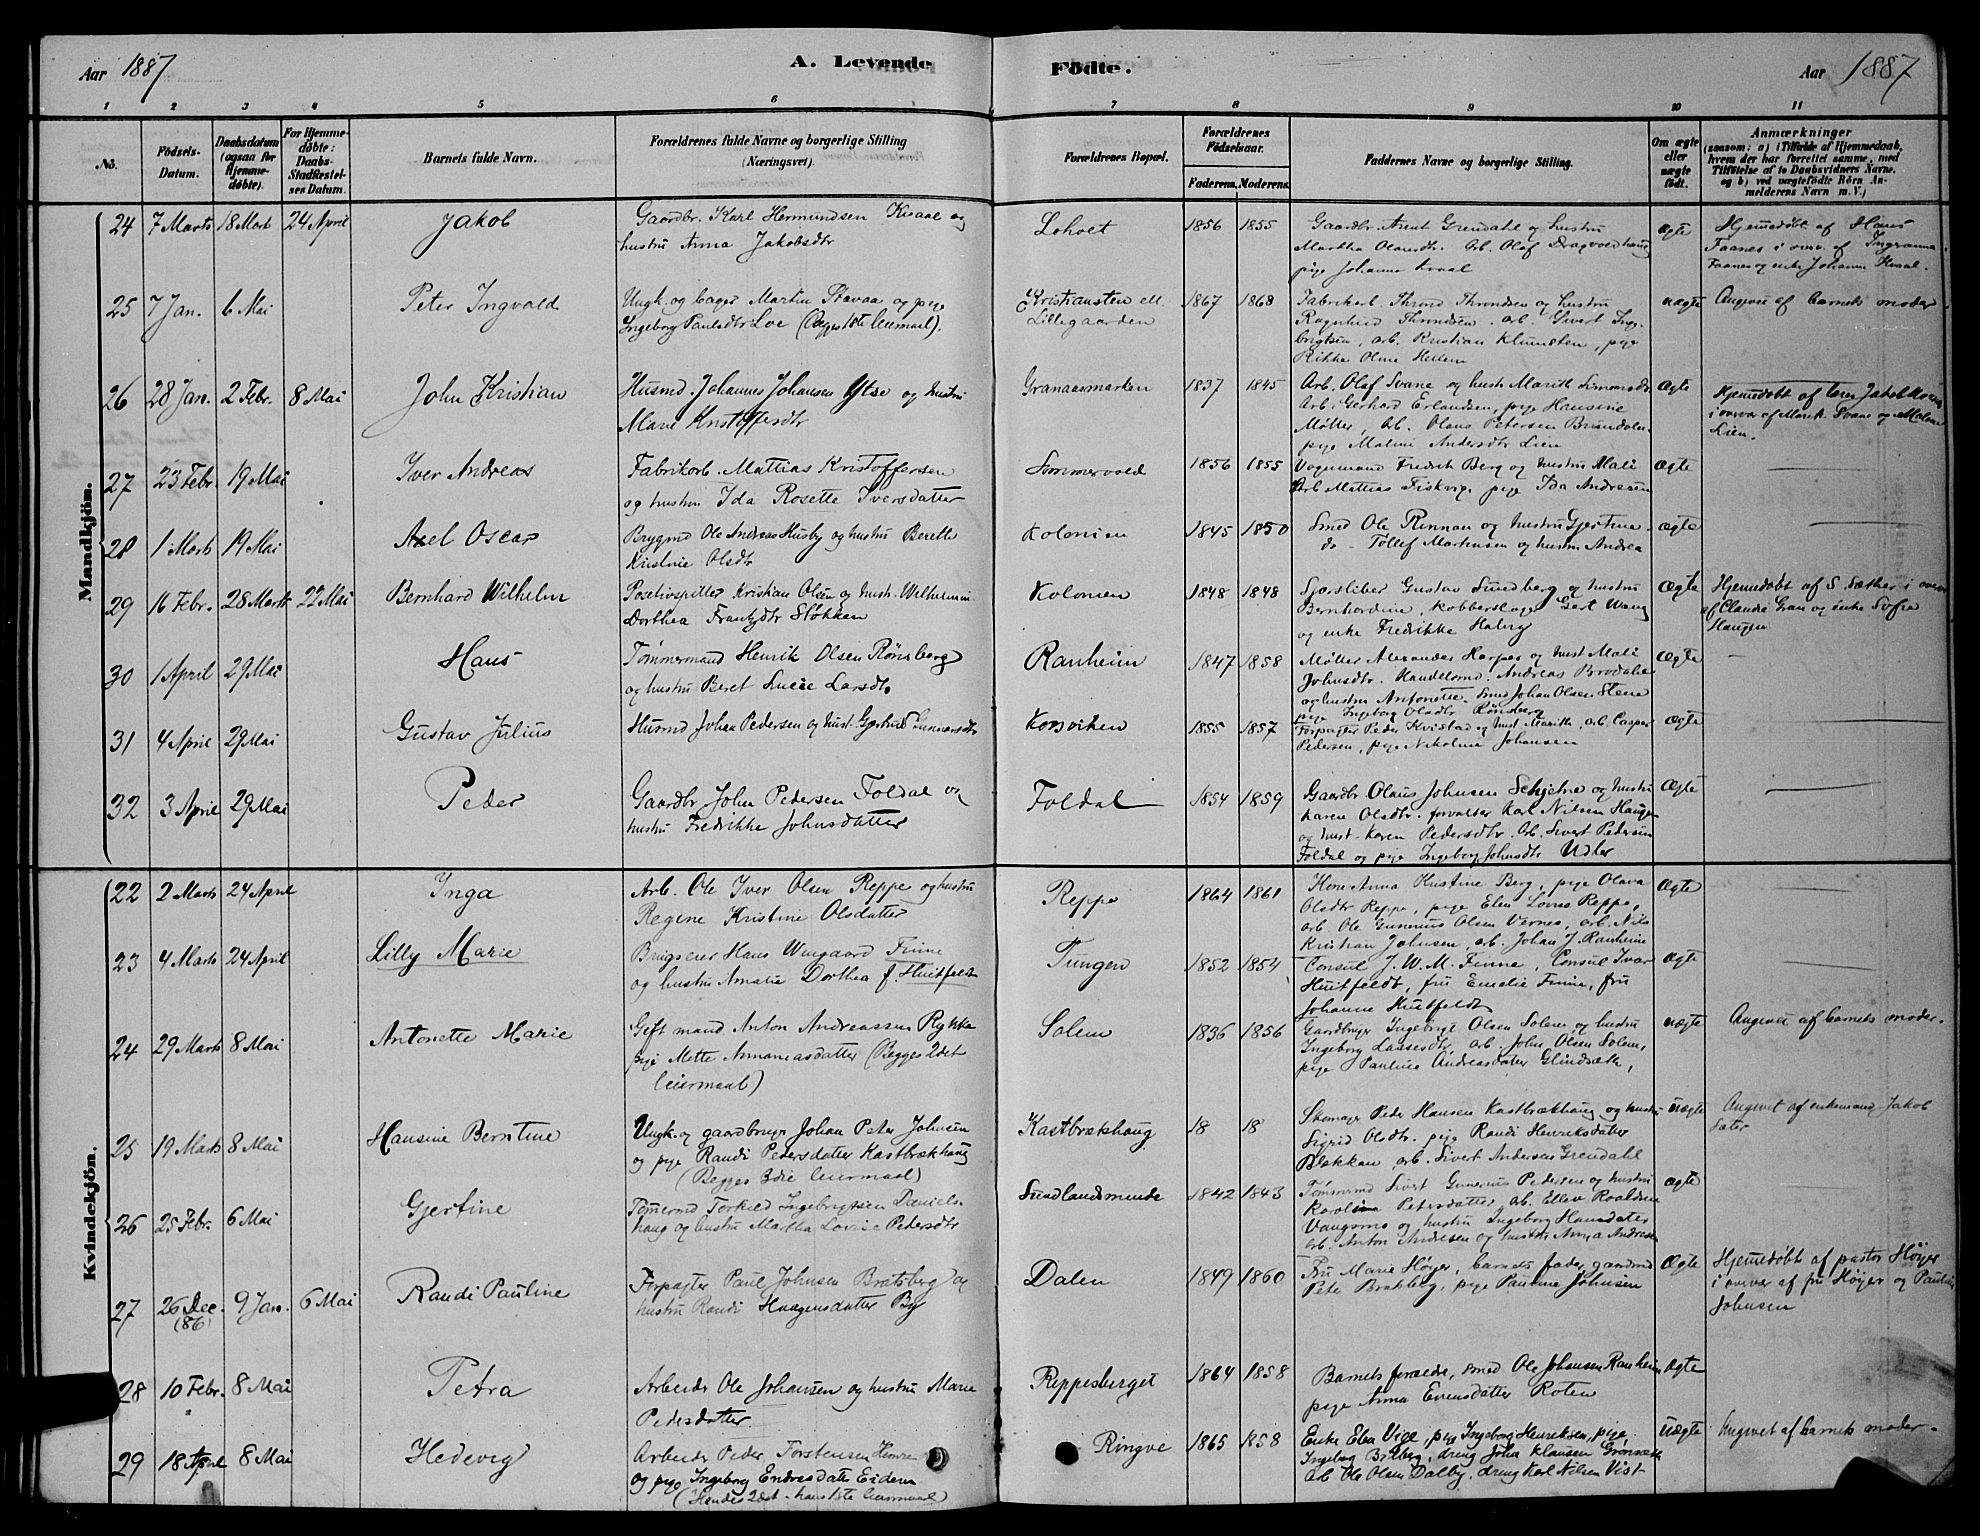 Aar 1887
A. Levende Födte.
Aar 1887
1 2 3 4 5 6 7 8 9 10 11
No.
Födsels-
Datum.
Daabsdatum
(ogsaa for
Hjemme-
döbte).
For Hjemme-
döbte:
Daabs-
Stadfæstel-
ses Datum.
Barnets fulde Navn.
Forældrenes fulde Navne og borgerlige Stilling
(Næringsvei).
Forældrenes Bopæl.
Forældrenes
Födselsaar.
Faderens. Moderens.
Faddernes Navne og borgerlige Stilling.
Om ægte
eller
uægte
födt.
Anmærkninger
(saasom: a) i Tilfælde af Hjemmedaab,
hvem der har forrettet samme, med
Tilföielse af to Daabsvidners Navne,
og b) ved uægtefödte Börn An-
melderens Navn m. V.)
Mandkjön.
24 7 Marts 18 Mart 24 April Jakob
Gaardbr. Karl Hermundsen Kvaal og
hustru Anna Jakobsdtr
Loholt 1856 1855
Gaardbr. Arent Grendahl og hustru
Martha Olausdtr. Arb. Olaf Dragvoldhaug
pige Johanna Kvaal
Ægte
Hjemedøbt af Hans
Faanes i overv. af Ingeranna
Faanes og enke Johanna Kvaal.
25 7 Jan. 6 Mai Peter Ingvald
Ungk. og bager Martin Stavaa og pige
Ingeborg Paulsdtr Loe (Begges 1ste leiermaal).
Kristiansten ell.
Lillegaarden
1867 1868
Fabrikarb. Thrond Throndsen og hustru
Ragnhild Throndsen. arb. Sivert Inge-
brigtsen, arb. Kristian Klumsten, pige
Rikke Oline Hellem
uægte
Angivet af barnets moder
26 28 Jan. 2 Febr. 8 Mai John Kristian
Husmd. Johannes Johansen Ytse og hustru
Marie Kristoffersdtr
Granaasmarken 1837 1845
Arb. Olaf Svane og hustr. Marith Simonsdtr
Arb. Gerhard Erlandsen, pige Hansine
Møller, Arb. Olaus Petersen Brundalen
pige Malene Andersdtr Lien
Ægte
Hjemedøbt af lærer Jakob
i overvær af Marith Svane og Malene
Lien.
27 23 Febr. 19 Mai Iver Andreas
Fabrikarb. Mattias Kristoffersen
og hustru Ida Rosette Iversdatter
Sommervold 1856 1855
Vognmand Fredrik Berg og hustru Mali
Arb. Mattias Fiskvig, pige Ida Andresen
Ægte
28 1 Marts 19 Mai Axel Oscar
Brygmd Ole Andreas Husby og hustru Berette
Kristine Olsdtr
Kolonien 1845 1850
Smed Ole Rennan og hustru Gjertine
do - Tollef Martinsen og hustru Andrea
Ægte
29 16 Febr. 28 Marts 22 Mai Bernhard Wilhelm
Positivspiller Kristian Olsen og hust. Wilhelmine
Dorthea Frantzdtr Slökken
Kolonien 1848 1848
Gustav Sundberg og hustru
Bernhardine, Kobberslager Gert Wang
og enke Fredrikke Haberg
Ægte
Hjemedøbt af S. Sæther i overv
af Claudia Gran og enke Sofie
Haugen
30 1 April 29 Mai Hans
Tømmermand Henrik Olsen Rønsberg
og hustru Beret Lucie Larsdtr
Ranheim 1847 1858
Møller Alexander Harper og hust Mali
Johnsdtr. Handelsmd. Andreas Brodalie
og hustru Antonette. Smed Johan Olsen Stene
pige Ingeborg Olsdtr Rønsberg
Ægte
31 4 April 29 Mai Gustav Julius
Husmd Johan Pedersen og hust. Gjertrud Gunnarsdtr
Korsviken 1855 1857
Forpagter Peder Kvistad og hust Marith, arb. Casper
Pedersen, pige Nikoline Johansen
Ægte
32 3 April 29 Mai Peder
Gaardbr John Pedersen Foldal og
hustru Fredrikke Johnsdatter
Foldal 1854 1859
Gaardbr. Olaus Johnsen Schjelve og hustru
Karen Olsdtr. forvalter Karl Nilsen Haugen
og hust. Karen Pedersdtr. Arb. Sivert Pedersen
Foldal og pige Ingeborg Johnsdtr Udler
Ægte
Kvindekjön.
22 2 Marts 24 April Inga
Arb. Ole Iver Olsen Reppe og hustru
Regine Kristine Olsdatter
Reppe 1864 1861
Kone Anna Kristine Berg, pige Olava
Olsdtr Reppe, pige Elen Lovise Reppe,
arb Ole Gunerius Olsen Vernes, arb. Nils
Kristian Johnsen, arb. Johan J. Ranheim
Ægte
23 4 Marts 24 April Lilly Marie
Brugseier Hans Wingaard Finne
og hustru Amalie Dorthea f. Huitfeldt
Tungen 1852 1854
Consul J. W. M. Finne, Consul Ivar
Huitfeldt, fru Emelie Finne, fru
Johanne Huitfeldt
Ægte
24 29 Marts 8 Mai Antonette Marie
Gift mand Anton Andreassen Rykke
pige Mette Annaniasdatter (Begges 2det
leiermaal)
Solem 1836 1856
Gaardbruger Ingebrigt Olsen Solem, og hustru
Ingeborg Lassesdtr arb. John Olsen Solem,
pige Pauline Andreasdatter Glindsæth,
uægte
Angivet af barnets moder.
25 19 Marts 8 Mai Hansine Berntine
Ungk. og gaardbruger Johan Peter Johnsen
og pige Randi Pedersdatter Kastbrækhaug
(Begges 3die leiermaal)
Kastbrækhaug 18 18
Skomager Peder Hansen Kastbrækhaug og hustru
Sigrid Olsdtr. pige Randi Henriksdatter
Blækkan, arb. Sivert Andersen Grendahl
uægte
Angivet af enkemand Jakob
Sæter
26 25 Febr. 6 Mai Gjertine
Tømermd Torkild Ingebrigtsen Daniels-
haug og hustru Martha Lovise Pedersdtr
Sundlandsminde 1842 1843
Tømermd Sivert Gunerius Pedersen og hustru
Karoline Petersdatter, arb. Ellev Roaldsen
Vangsmo og hustru Ingeborg Hansdatter
arb. Anton Andresen og hustru Anna Andresen
Ægte
27 26 Dec. (86) 9 Jan. 6 Mai Randi Pauline
Forpagter Paul Johnsen Bratsberg og
hustru Randi Haagensdatter By
Dalen 1849 1860
Fru Marie Høyer, barnets fader, gaardmd
Peter Bratsberg, pige Pauline Johnsen
Ægte
Hjemedøbt af pastor Høyer
i overvær af fru Høyer og Pauline
Johnsen
28 10 Febr. 8 Mai Petra
Arbeider Ole Johansen og hustru Marie
Pedersdatter
Reppesberget 1864 1858
Barnets forældre, smed Ole Johansen Ranheim
pige Anna Evensdatter Roten
Ægte
29 18 April 8 Mai Hedevig
Arbeider Peder Torstensen Himre
og pige Ingeborg Endresdatter Eidem
(Hendes 2det - hans 1ste leiermaal)
Ringve 1865 1858
Enke Elen Vige, pige Ingeborg Henriksen, pige
Ingeborg Bilberg, dreng Johan Klausen Grønsæth
arb. Ole Olsen Dalby, dreng Karl Nilsen Vist
uægte
Angivet af barnets moder.